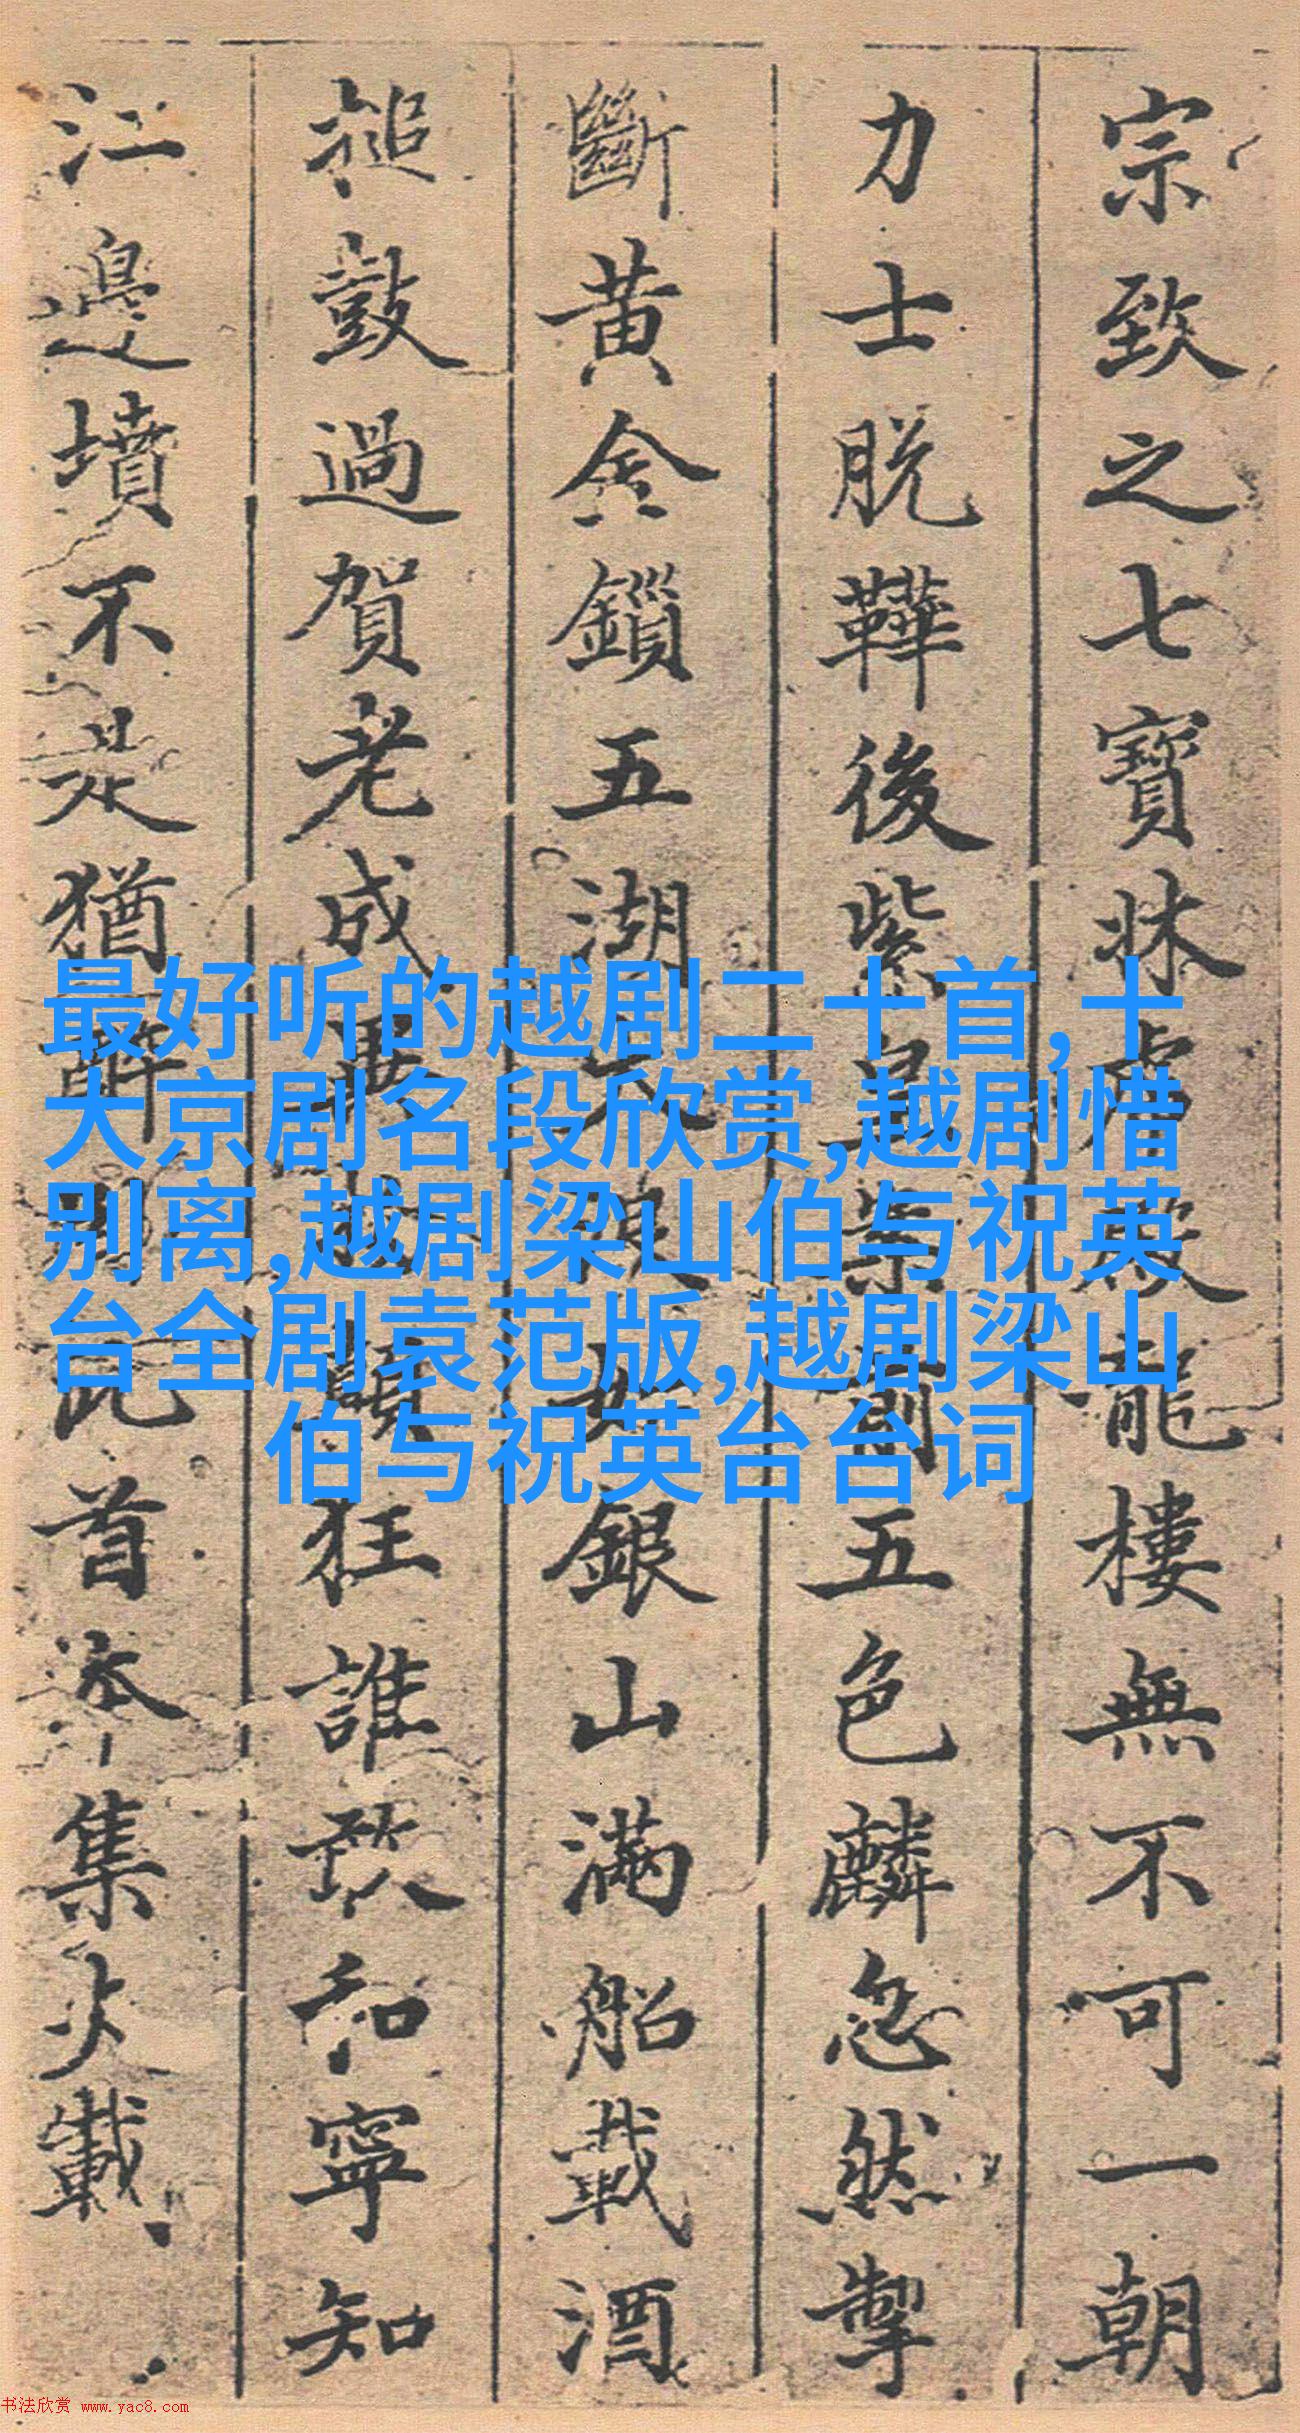 宗致之七寶牀虎殿龍樓無不可一朝
力士脫鞾後紫皇案前五色麟忽然掣
斷黃金鎖五湖大浪如銀山滿船載酒
搥鼓過賀老成異物顛狂誰敢和寧知
江邊墳不是猶醉臥此首本集載
最好听的越剧二十首,十
大京剧名段欣赏,越剧惜
别离,越剧梁山伯与祝英
台全剧袁范版,越剧梁山
伯与祝英台台词
书法欣赏 www.yac8.com